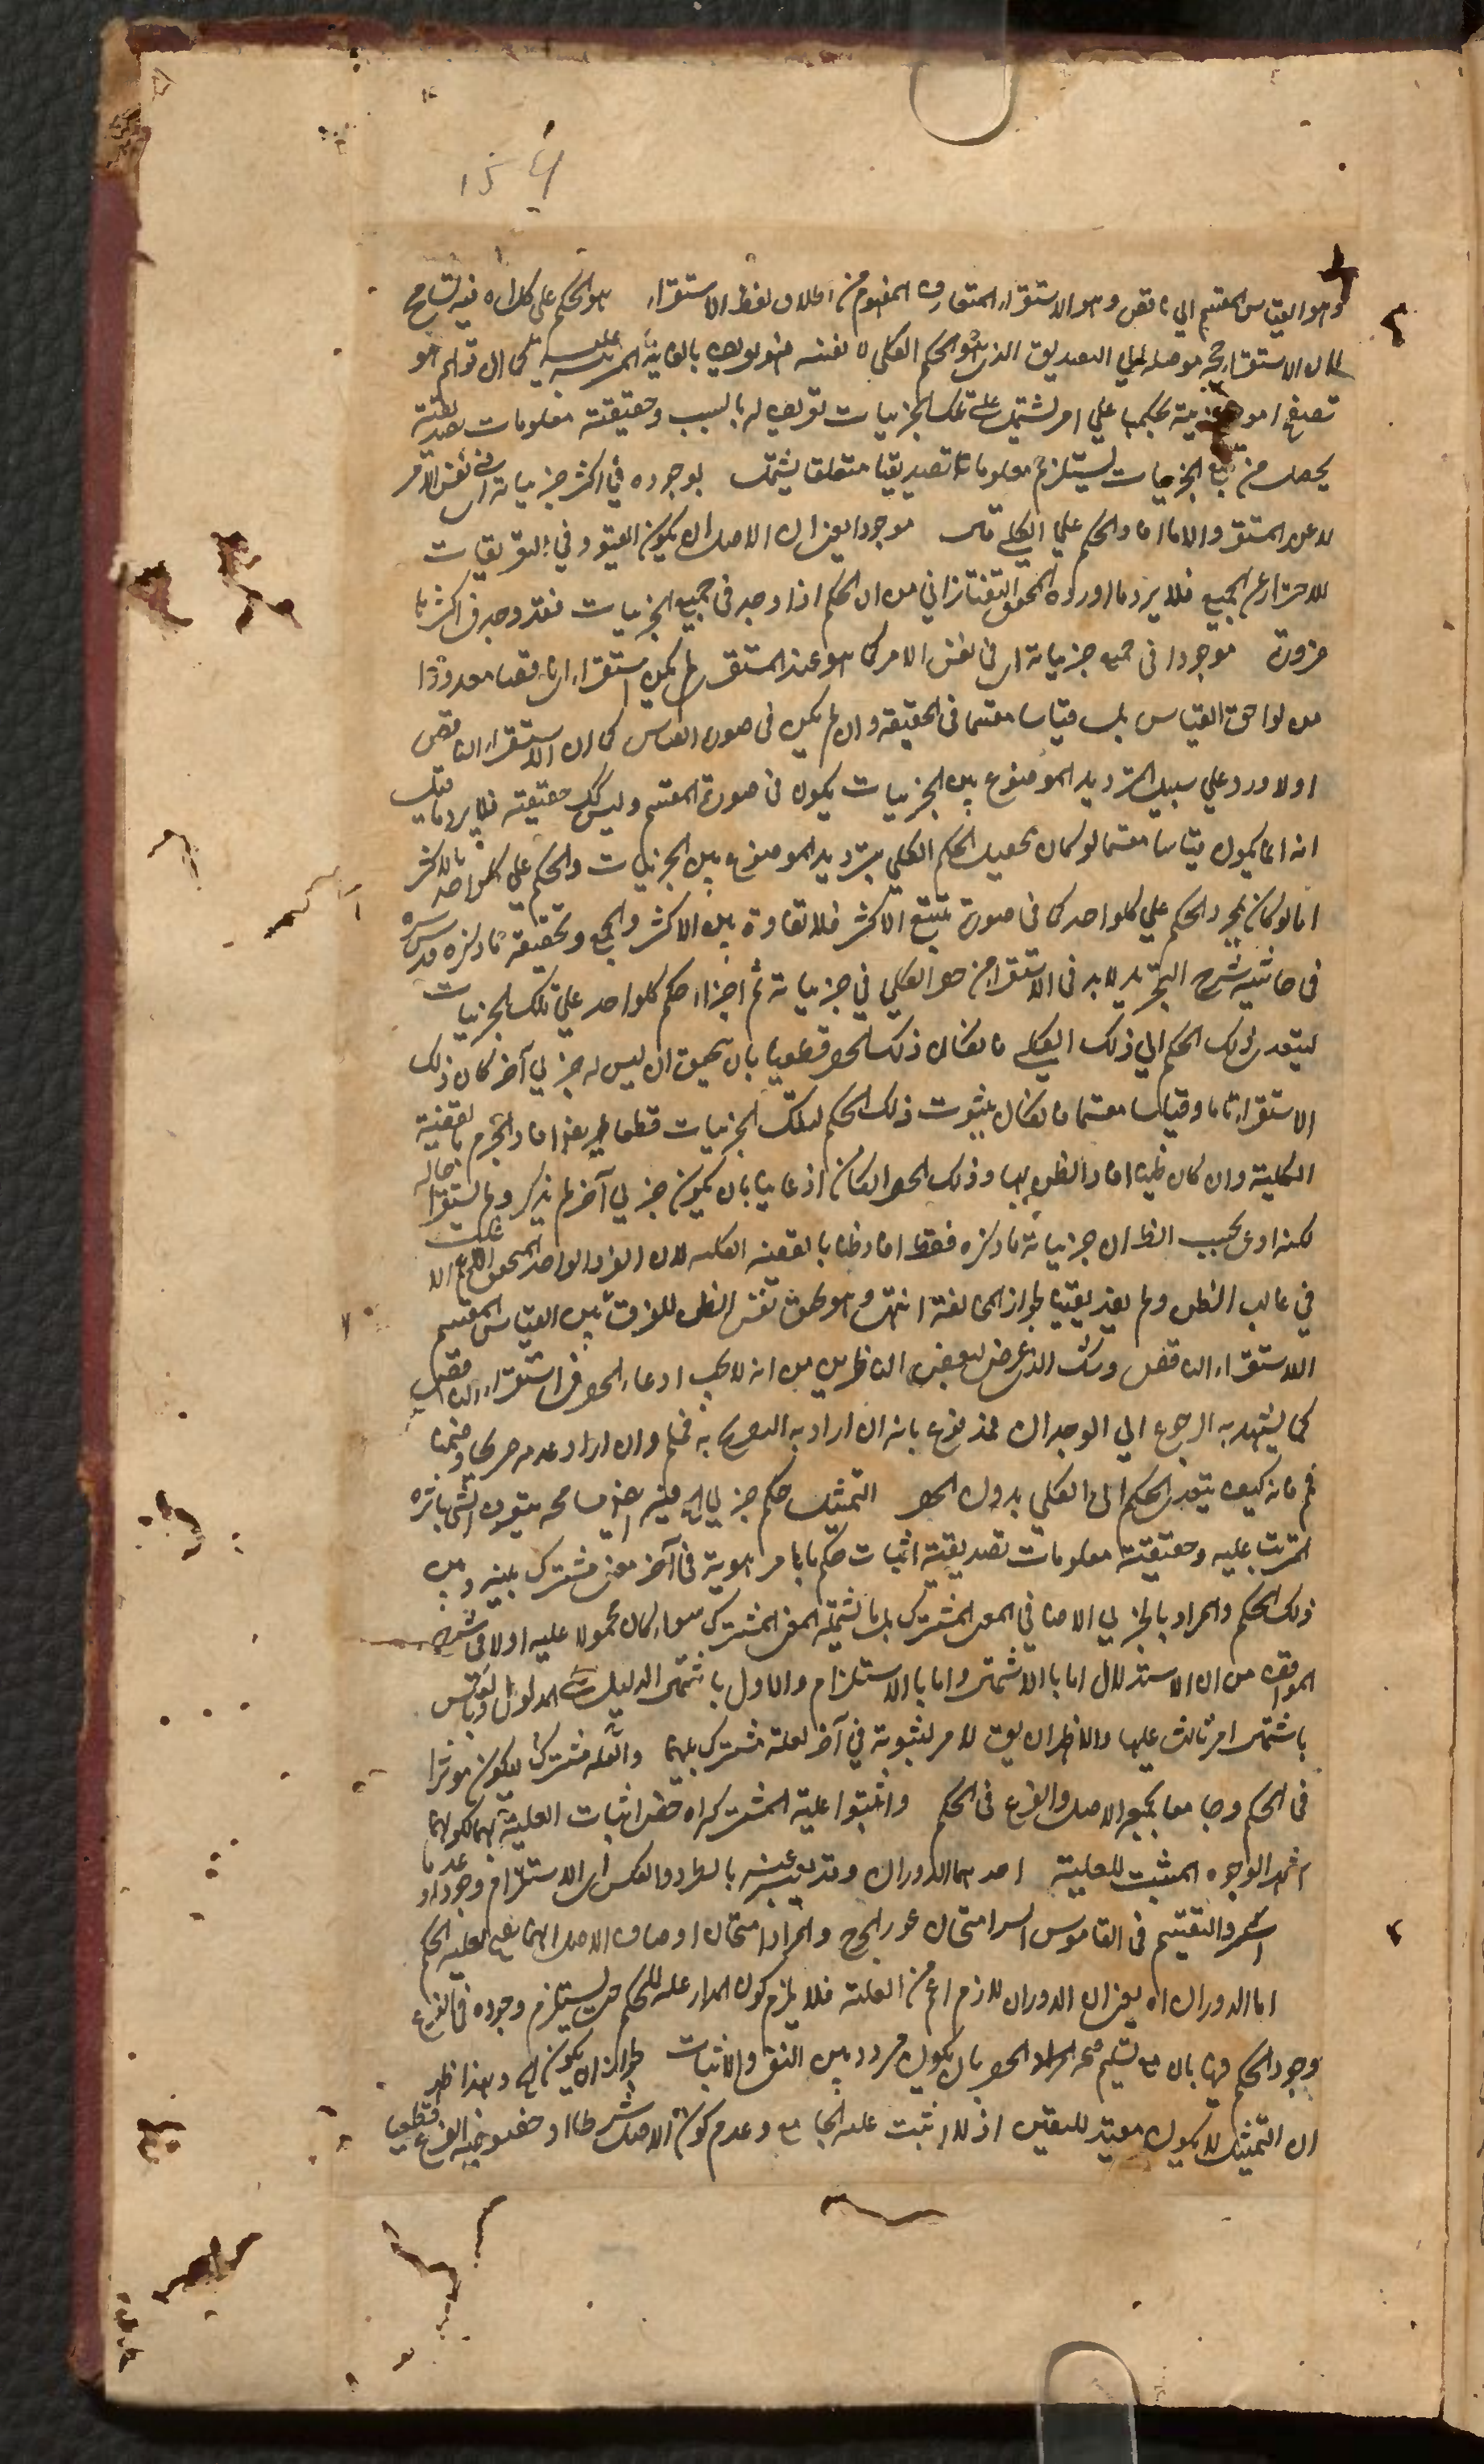 وهو القياس المقسم الى ناقص وهو الاستقراء المتعارف المفهوم من اطلاق لفظ الاستقراء هو الحكم على كلى اه فيه تسامح
لان الاستقراء حجة موصلة الى التصديق الذى هو الحكم الكلى لا نفسه فتعريفه بالغاية المرتبة عليه كما ان قولهم هو
تصفح امور جزئية ليحكم بها على امر يشتمل على تلك الجزئيات تعريف له بالسبب وحقيقته معلومات تصديقية
يحصل من تتبع الجزئيات يستلزم معلوما تصديقيا متعلقا يشتمل لوجوده في اكثر جزئياته اى في نفس الامر
لا عند المستقرى والا ما افاد الحكم على الكلى موجودا يعنى ان الاصل ان يكون القيود في التعريفات
للاحتراز عن الجميع فلا يرد ما اورده المحقق التفتازاني من ان الحكم اذا وجد في جميع الجزئيات فقد وجد في اكثرها
ضرورة موجودا في جميع جزئياته اى في نفس الامر كما هو عند المستقرى لم يكن استقراء اى ناقصا معدودا
من لواحق القياس بل قياسا مقسما في الحقيقة وان لم يكن في صورة القياس كما ان الاستقراء الناقص
اولا ورد على سبيل الترديد الموضوع بين الجزئيات يكون في صورة المقسم وليس كك حقيقة فلا يرد ما قيل
انه انما يكون قياسا مقسما لو كان تحصيل الحكم الكلى بترديد الموضوع بين الجزئيات والحكم على كل واحد
اما لو كان بمجرد الحكم على كل واحد كما في صورة تتبع الاكثر فلا تفاوت بين الاكثر والجميع وتحقيقه ما ذكره قدس سره
في حاشية شرح التجريد لابد في الاستقراء من حصر الكلى في جزئياته ثم اجراء حكم كل واحد على تلك الجزئيات
ليتعدى ذلك الحكم الى ذلك الكلى فان كان ذلك الحصر قطعيا بان تحقق ان ليس له جزئي آخر كان ذلك
الاستقراء تاما وقياسا مقسما فان كان ثبوت ذلك الحكم لتلك الجزئيات قطعيا افاد الجزم بالقضية
الكلية وان كان ظنيا افاد الظن بها وذلك الحصر ان كان ادعائيا بان يكون جزئي آخر لم يذكر ولم يستقرأ حاله
لكنه ادعى بحسب الظ ان جزئياته ما ذكره فقط افاد ظنا بالقضية الكلية لان الفرد الواحد يلحق بالاعم الاغلب
في غالب الظن ولم يفد يقينا لجواز المخالفة انتهى وهو تحقيق نفيس للفرق بين القياس المقسم
الاستقراء الناقص وشك الذى عرض لبعض الناظرين من انه لا يجب ادعاء الحصر في الاستقراء الناقص
كما يشهد به الرجوع الى الوجدان فمدفوع بانه ان اراد به التصريح به فمسلم وان اراد عدمه صريحا وضمنا
فم فانه كيف يتعدى الحكم الى الكلى بدون الحصر التمثيل حكم جزئي اه فيه ايضا مسامحة بتعريف الشئ باثره
المرتب عليه وحقيقته معلومات تصديقية اثبات حكم باامر هوية في آخر معنى مشترك بينه وبين
ذلك الحكم والمراد بالجزئي الاضافي المعنى المشترك بل ما يشتمله المعنى المشترك سواء كان محمولا عليه اولا في شرح
المواقف من ان الاستدلال اما بالاشتمال واما بالاستلزام والاول باشتمال الدليل على المدلول او بالعكس
باشتمال امر ثالث عليهما والاظهر ان يق لامر لثبوته في آخر لعلة مشترك بينهما والعلة مشتركا لكون مؤثرا
في الحكم وجامعا لجمعه الاصل والفرع في الحكم واثبتوا علية المشترك اه خص اثبات العلية بهما لكونهما
اشهر الوجوه المثبت للعلية احدهما الدوران وقد يعبر عنه بالطرد والعكس اى الاستلزام وجودا وعدما
السبر والتقسيم في القاموس السبر امتحان غور الجرح والمراد امتحان اوصاف الاصل ايهما يصلح لعلية الحكم
اما الدوران اه يعنى ان الدوران لازم اعم من العلية فلا يلزم كون المدار علة للحكم حتى يستلزم وجوده في الفرع
وجود الحكم فيه بان مع تسليم الحصر بان يكون مردد بين النفى والاثبات لجواز ان يكون اه وبهذا ظهر
ان التمثيل لا يكون مفيدا لليقين اذ لا يثبت علية الجامع وعدم كون الاصل شرطا او خصوصية الفرع قطعيا